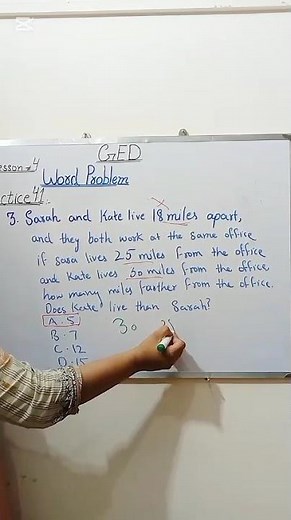 GED
Lesson 4
Word Problem
ctice 41.
3. Sarah and Kate live 18 miles apart,
and they both work at the same office
if sasa lives 25 miles from the office
and Kate lives 30 miles from the office
how many miles farther from the office.
Does Kate live than Sarah?
A. 5
B. 7
C. 12
D. 15
30